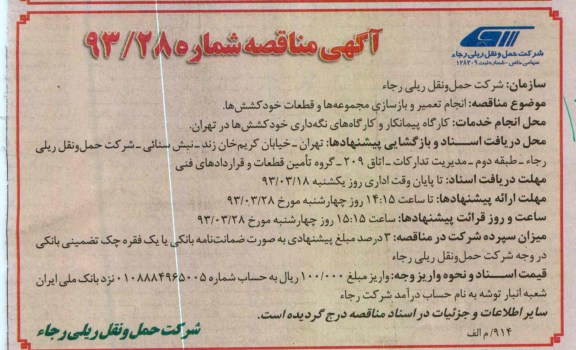 شرکت حمل و نقل ریلی رجاء
سهامی خاص - شماره ثبت ۱۲۸۲۰۹
آگهی مناقصه شماره ۹۳/۲۸
سازمان: شرکت حمل‌ونقل ریلی رجاء
موضوع مناقصه: انجام تعمیر و بازسازی مجموعه‌ها و قطعات خودکشش‌ها.
محل انجام خدمات: کارگاه پیمانکار و کارگاه‌های نگه‌داری خودکشش‌ها در تهران.
محل دریافت اسناد و بازگشایی پیشنهادها: تهران - خیابان کریم‌خان زند - نبش سنائی - شرکت حمل‌ونقل ریلی
رجاء - طبقه دوم - مدیریت تدارکات - اتاق ۲۰۹ - گروه تأمین قطعات و قراردادهای فنی
مهلت دریافت اسناد: تا پایان وقت اداری روز یکشنبه ۹۳/۰۳/۱۸
مهلت ارائه پیشنهادها: تا ساعت ۱۴:۱۵ روز چهارشنبه مورخ ۹۳/۰۳/۲۸
ساعت و روز قرائت پیشنهادها: ساعت ۱۵:۱۵ روز چهارشنبه مورخ ۹۳/۰۳/۲۸
میزان سپرده شرکت در مناقصه: ۳ درصد مبلغ پیشنهادی به صورت ضمانت‌نامه بانکی یا یک فقره چک تضمینی بانکی
در وجه شرکت حمل‌ونقل ریلی رجاء
قیمت اسناد و نحوه واریز وجه: واریز مبلغ ۱۰۰/۰۰۰ ریال به حساب شماره ۰۱۰۸۸۸۴۹۶۵۰۰۵ نزد بانک ملی ایران
شعبه انبار توشه به نام حساب درآمد شرکت رجاء
سایر اطلاعات و جزئیات در اسناد مناقصه درج گردیده است.
۹۱۴/م الف
شرکت حمل و نقل ریلی رجاء